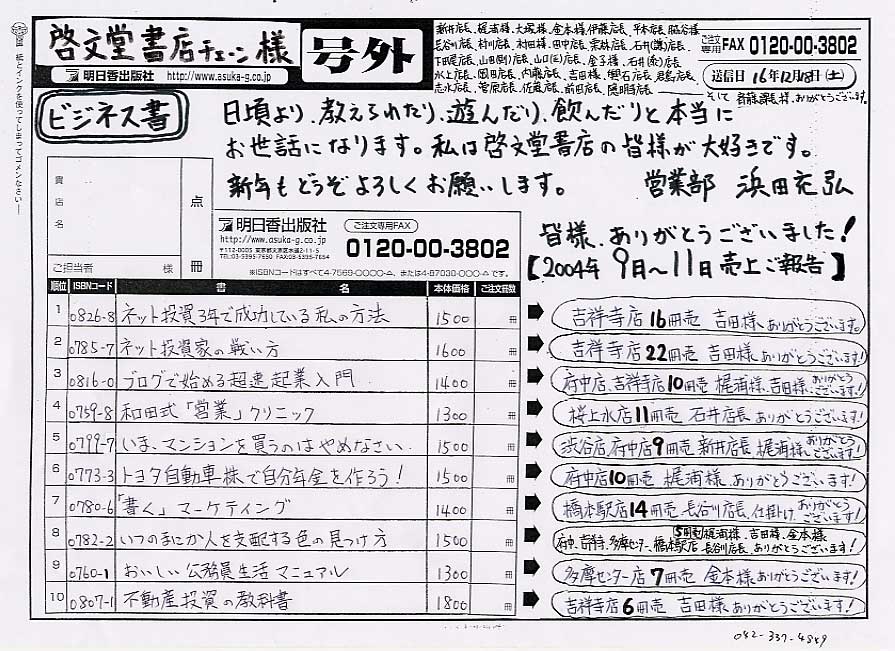 紙とインクを使ってしまってゴメンなさい
啓文堂書店チェーン様
明日香出版社 http://www.asuka-g.co.jp
号外
新井店長、梶浦様、大塚様、金本様、伊藤店長、平木店長、脇谷様
長谷川店長、村川店長、村田様、田中店長、宗林店長、石井(謙)店長、
下田尾店長、山田(剛)店長、山口(正)店長、金子様、石井(奈)店長
水上店長、岡田店長、内藤店長、吉田様、奥石店長、君島店長、
志水店長、菅原店長、佐藤店長、前田店長、
ご注文専用FAX 0120-00-3802
送信日 16年12月18日(土)
ありがとうございます。
ビジネス書
日頃より、教えられたり、遊んだり、飲んだりと本当に
お世話になります。私は啓文堂書店の皆様が大好きです。
新年もどうぞよろしくお願いします。 営業部 浜田充弘
貴店名
ご担当者 様
点
冊
明日香出版社
http://www.asuka-g.co.jp
〒112-0005 東京都文京区水道2-11-5
TEL:03-5395-7650 FAX:03-5395-7654
ご注文専用FAX
0120-00-3802
※ISBNコードはすべて4-7569-○○○○-△、または4-87030-○○○-△です。
皆様、ありがとうございました!
【2004年 9月〜11月売上ご報告】
順位 ISBNコード 書名 本体価格 ご注文冊数
1 0826-8 ネット投資3年で成功している私の方法 1500 冊 ➡ 吉祥寺店16冊売 吉田様、ありがとうございます。
2 0785-7 ネット投資家の戦い方 1600 冊 ➡ 吉祥寺店22冊売 吉田様、ありがとうございます!
3 0816-0 ブログで始める超速起業入門 1400 冊 ➡ 府中店、吉祥寺店10冊売 梶浦様、吉田様、ありがとうございます!
4 0759-8 和田式「営業」クリニック 1300 冊 ➡ 桜上水店11冊売 石井店長、ありがとうございます!
5 0799-7 いま、マンションを買うのはやめなさい 1500 冊 ➡ 渋谷店、府中店9冊売 新井店長、梶浦様、ありがとうございます!
6 0773-3 トヨタ自動車株で自分年金を作ろう! 1500 冊 ➡ 府中店10冊売 梶浦様、ありがとうございます!
7 0780-6 「書く」マーケティング 1400 冊 ➡ 橋本駅店14冊売 長谷川店長、仕掛け、ありがとうございます!
8 0782-2 いつのまにか人を支配する色の見つけ方 1500 冊 ➡ 府中、吉祥寺、多摩センター、橋本駅店 5冊売 梶浦様、吉田様、金本様、長谷川店長、ありがとうございます!
9 0760-1 おいしい公務員生活マニュアル 1300 冊 ➡ 多摩センター店7冊売 金本様、ありがとうございます!
10 0807-1 不動産投資の教科書 1800 冊 ➡ 吉祥寺店6冊売 吉田様、ありがとうございます!
042-337-4849